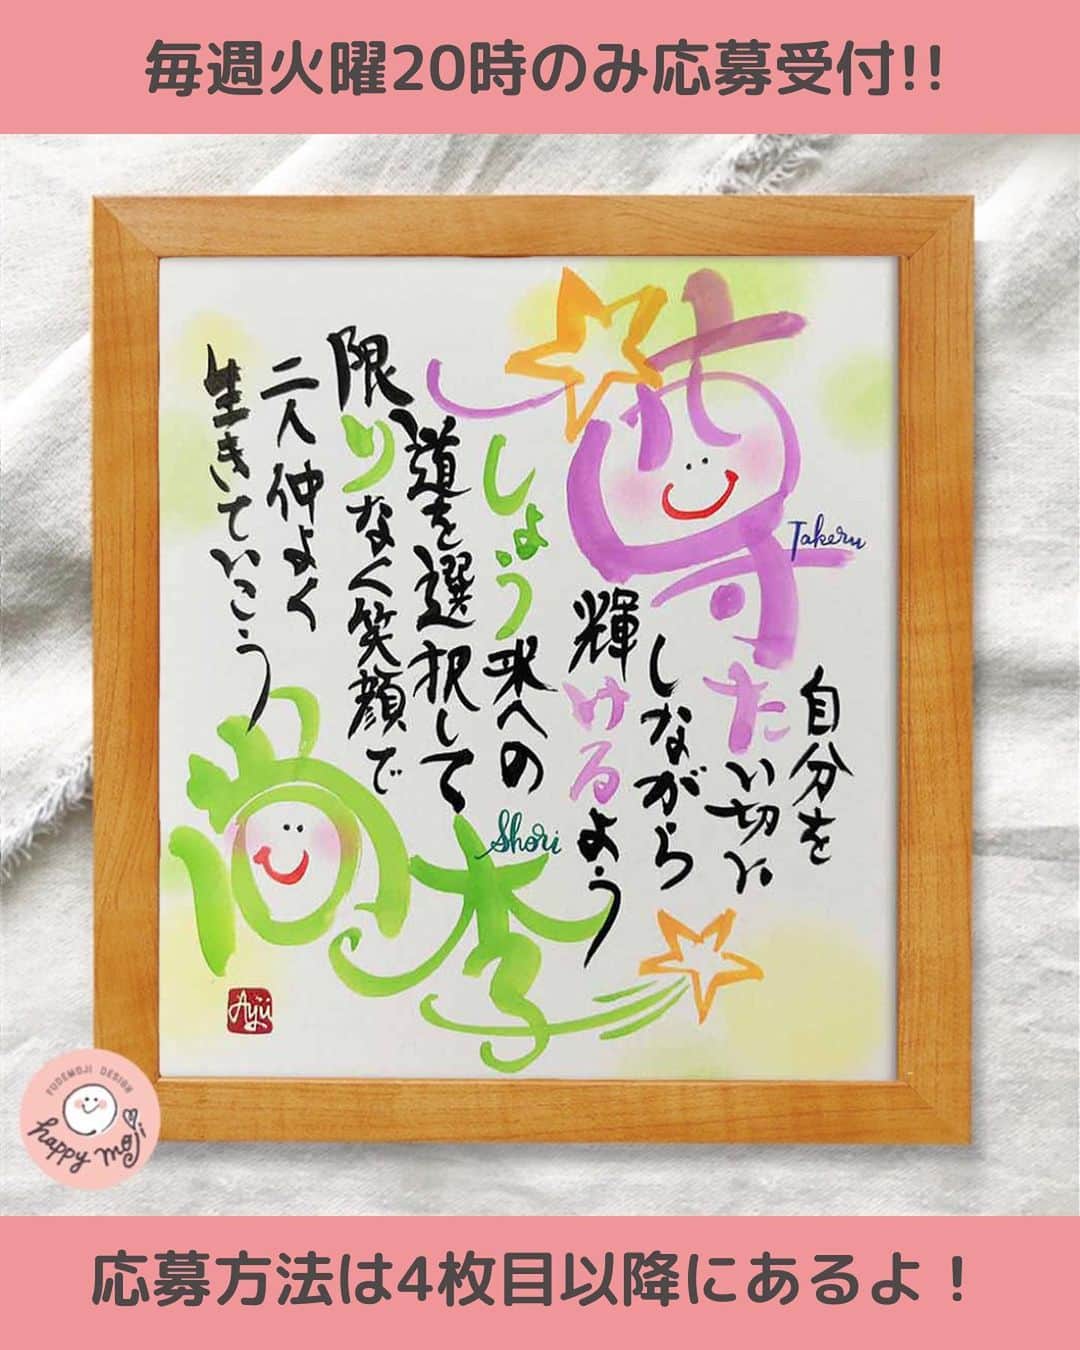 毎週火曜20時のみ応募受付!!
尊
Takeru
自分を
たい切に
しながら
輝けるよう
しょう来への
道を選択して
限りなく笑顔で
二人仲よく
生きていこう
尚季
Shori
Ayü
FUDEMOJI DESIGN
happy moji
応募方法は4枚目以降にあるよ！